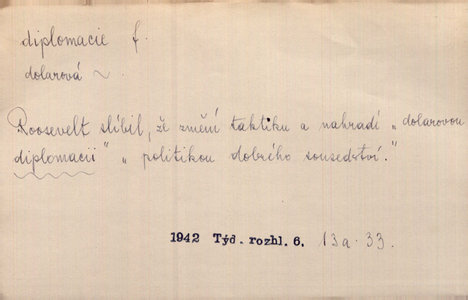 diplomacie f.
dolarová ~.
Roosevelt slíbil, že změní taktiku a nahradí „dolarovou
diplomacii" „politikou dobrého sousedství."
1942 Týd. rozhl. 6. 13a. 33.